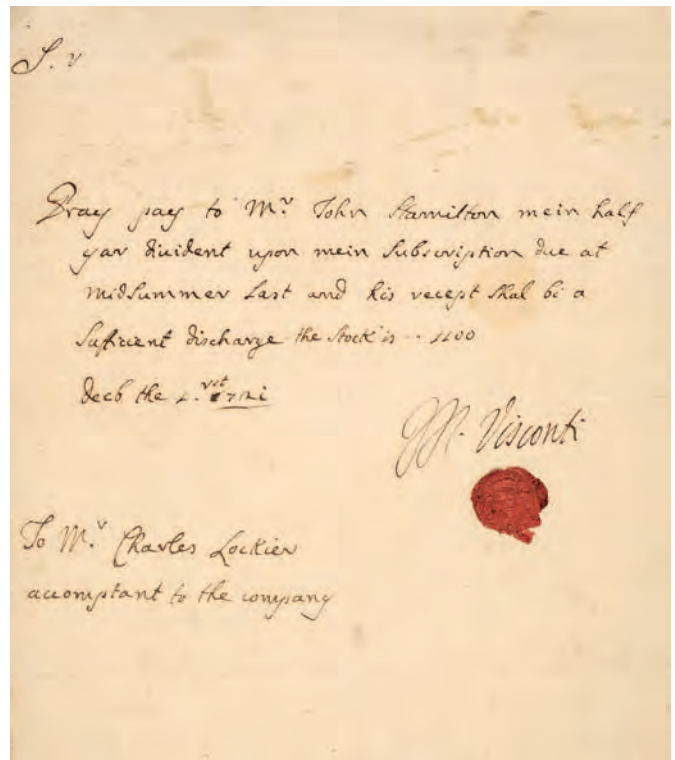 S.r
Pray pay to M.r John Hamilton mein half
yar diuident upon mein Subscription due at
midSummer Last and his recept Shal bi a
Suficient discharge the Stock is - 1100
Decb the 1.rst 1721
M. Visconti
To M.r Charles Lockier
accomptant to the company